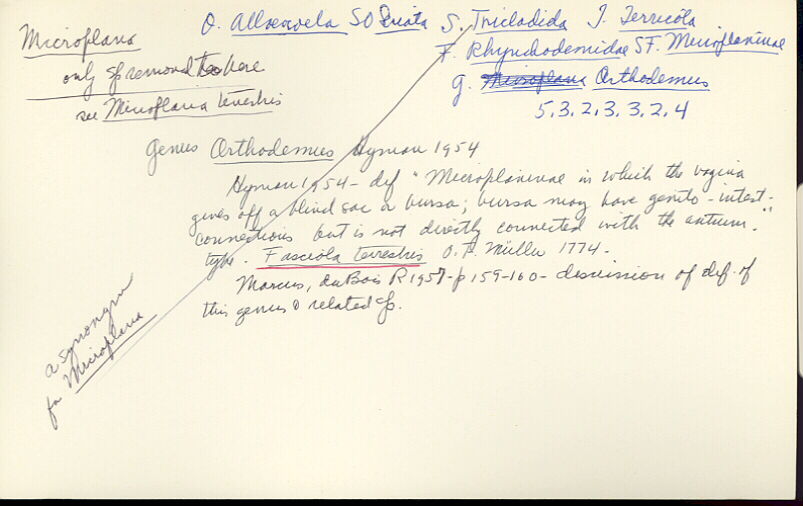 O. Alloeocoela SO Seriata S. Tricladida T. Terricola
F. Rhynchodemidae SF. Microplaninae
g. Microplana Orthodemus
5.3.2.3.3.2.4
Microplana
only sp removed to here
see Microplana terrestris
Genus Orthodemus Hyman 1954
Hyman 1954 - def "Microplaninae in which the vagina
gives off a blind sac or bursa; bursa may have genito-intest-
connections but is not directly connected with the antrum."
type. Fasciola terrestris O.F. Müller 1774.
Marcus, duBois R 1957 - p 159-160 - discussion of def. of
this genus & related sp.
a synonym
for Microplana